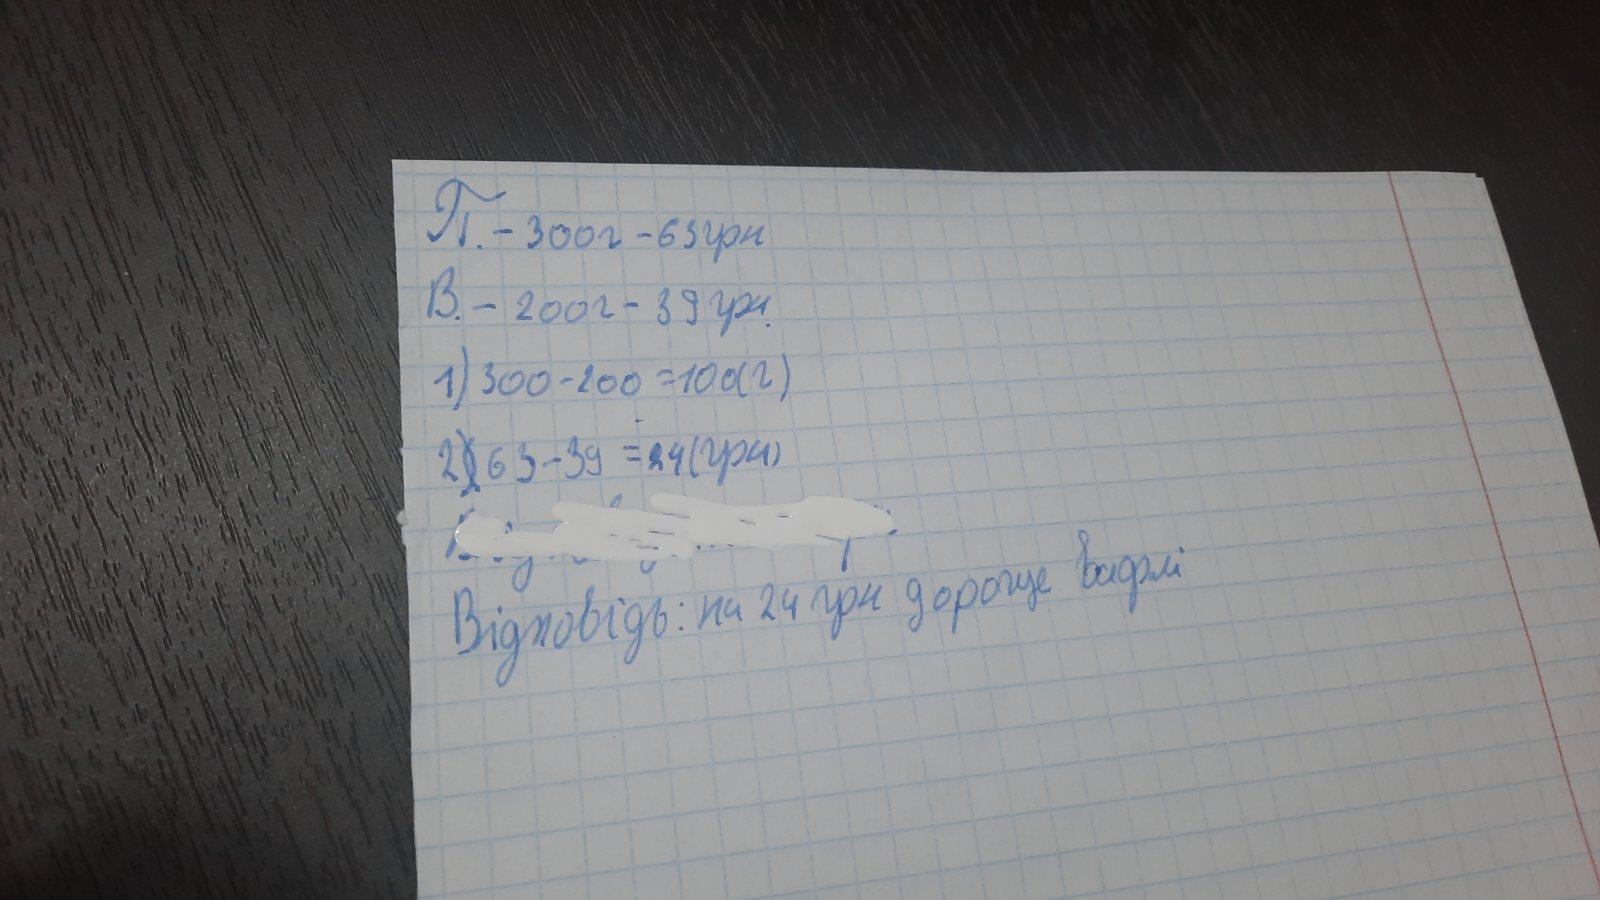 П. - 300г - 63грн
В. - 200г - 39грн.
1) 300 - 200 = 100(г)
2) 63 - 39 = 24(грн)
Відповідь: на 24 грн дорогще вафлі